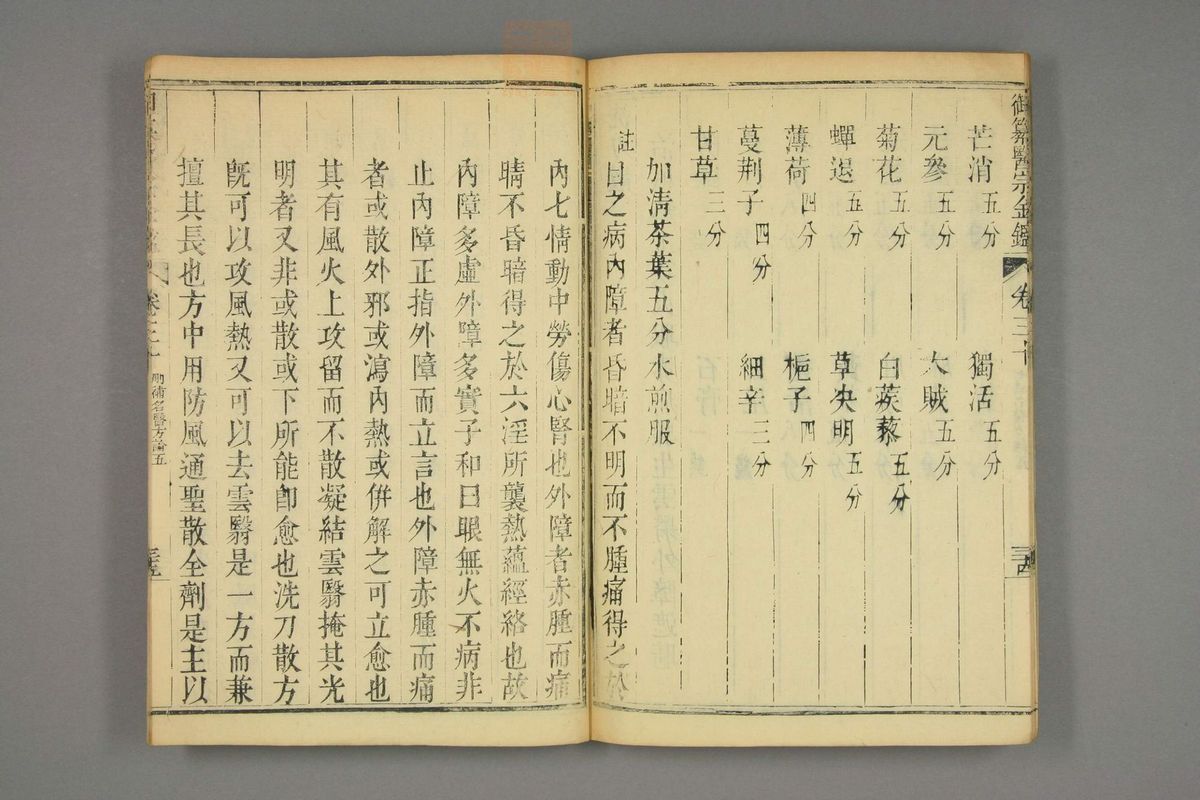 御纂醫宗金鑑
卷三十
三四
芒消 五分 獨活 五分
元參 五分 木賊 五分
菊花 五分 白蒺藜 五分
蟬退 五分 草決明 五分
薄荷 四分 梔子 四分
蔓荆子 四分 細辛 三分
甘草 三分
加淸茶葉五分水煎服
註
目之病內障者昏暗不明而不腫痛得之於
內七情動中勞傷心腎也外障者赤腫而痛
睛不昏暗得之於六淫所襲熱蘊經絡也故
內障多虛外障多實子和曰眼無火不病非
止內障正指外障而立言也外障赤腫而痛
者或散外邪或瀉內熱或倂解之可立愈也
其有風火上攻留而不散凝結雲翳掩其光
明者又非或散或下所能卽愈也洗刀散方
旣可以攻風熱又可以去雲翳是一方而兼
擅其長也方中用防風通聖散全劑是主以
卷三十
刪補名醫方論五
三五